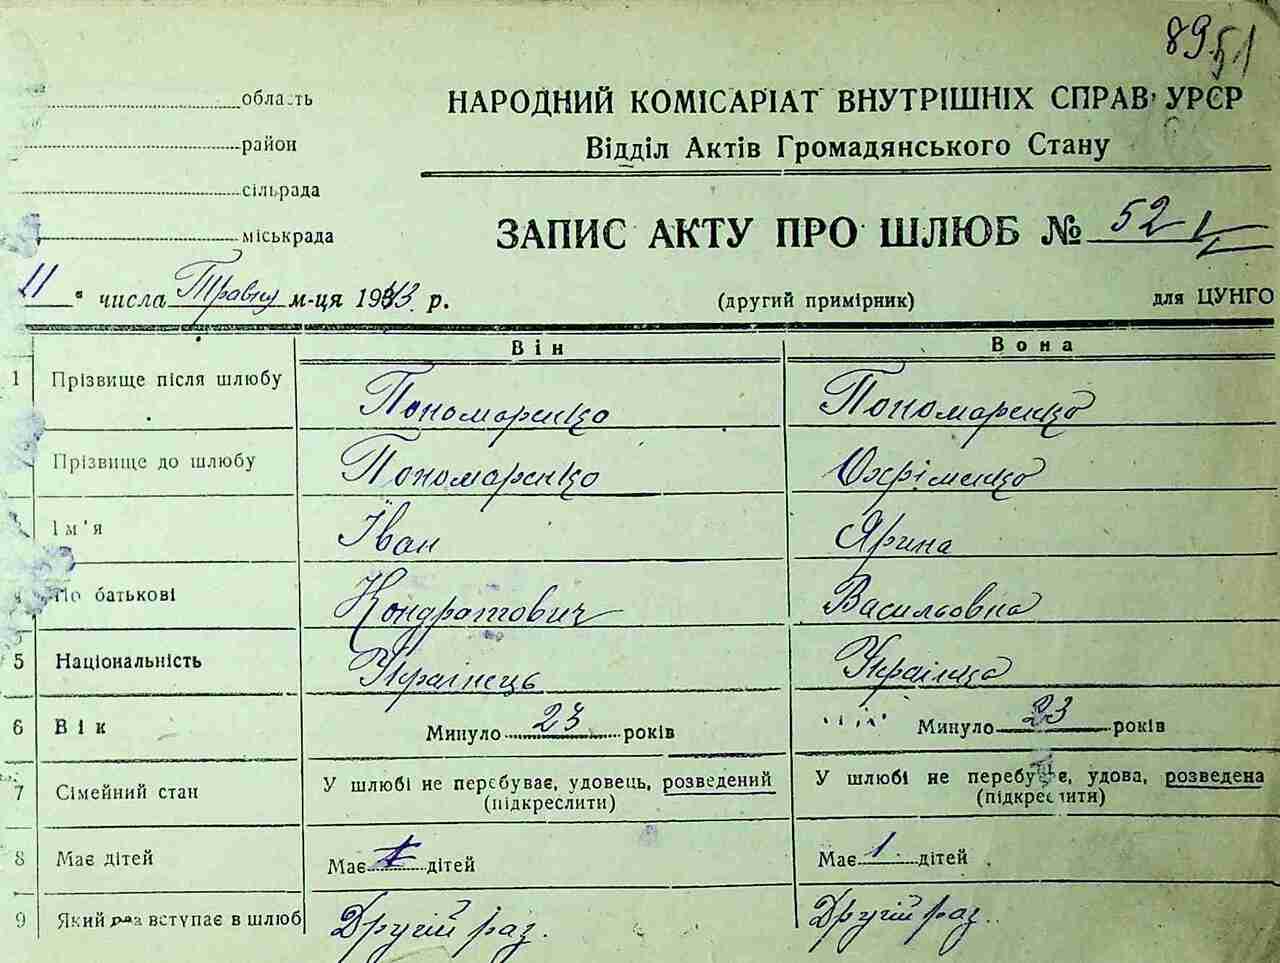 89
51
область
район
сільрада
міськрада
НАРОДНИЙ КОМІСАРІАТ ВНУТРІШНІХ СПРАВ УРЄР
Відділ Актів Громадянського Стану
ЗАПИС АКТУ ПРО ШЛЮБ № 52
11 " числа Травня м-ця 1943 р.
(другий примірник)
для ЦУНГО
Він Вона
1 Прізвище після шлюбу Пономаренко Пономаренко
Прізвище до шлюбу Пономаренко Охріменко
Ім'я Іван Ярина
По батькові Кондратович Васильовна
5 Національність Українець Українка
6 Вік Минуло 23 років Минуло 23 років
7 Сімейний стан У шлюбі не перебуває, удовець, розведений У шлюбі не перебуває, удова, розведена
(підкреслити) (підкреслити)
8 Має дітей Має дітей Має 1 дітей
9 Який раз вступає в шлюб Другій раз. Другій раз.